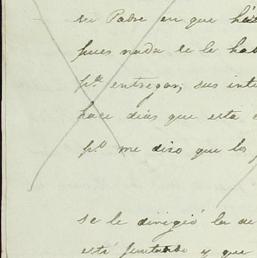 su Padre en que há
pues nada se le ha
p.ª entregar, sus inte
hace dias que esta
p.º me dixo que los
se le dirigió la
está y que